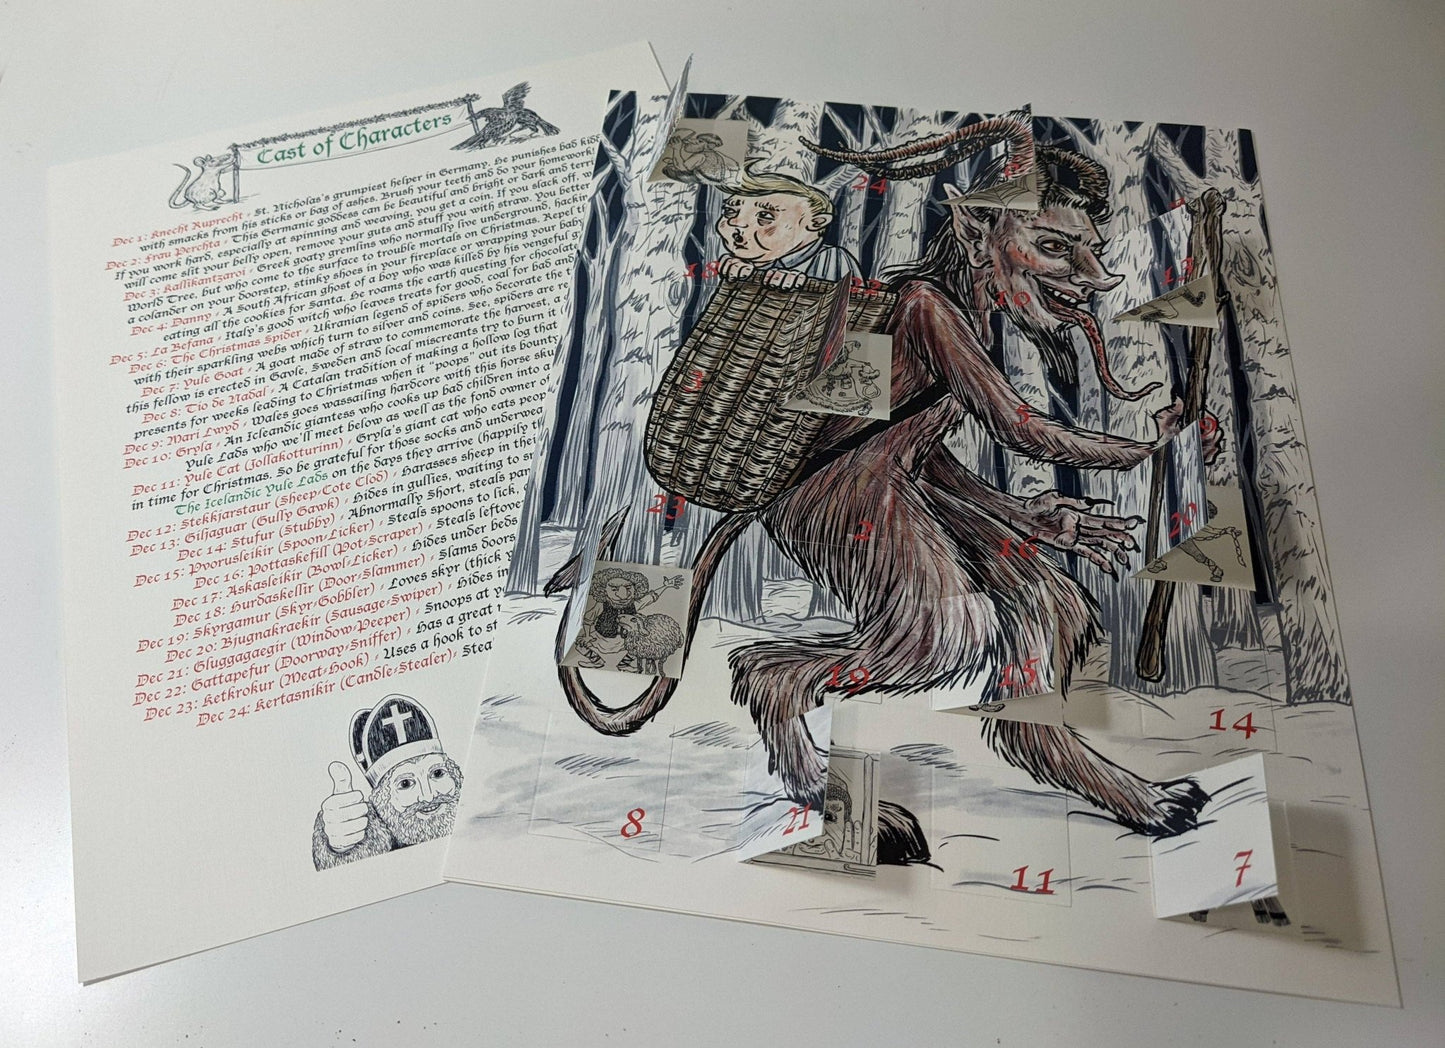 Cast of Characters
Dec 1: Knecht Ruprecht - St. Nicholas's grumpiest helper in Germany. He punishes bad kids
with smacks from his sticks or bag of ashes. Brush your teeth and do your homework!
Dec 2: Frau Perchta - This Germanic goddess can be beautiful and bright or dark and
If you work hard, especially at spinning and weaving, you get a coin. If you slack off,
will come slit your belly open, remove your guts and stuff you with straw. you better
Dec 3: Kallikantzaroi - Greek goaty gremlins who normally live underground,
World Tree, but who come to the surface to trouble mortals on Christmas. Repel
a colander on your doorstep, stinky shoes in your fireplace or wrapping your
Dec 4: Danny - A South African ghost of a boy who was killed by his vengeful
eating all the cookies for Santa. He roams the earth questing for
Dec 5: La Befana - Italy's good witch who leaves treats for good, coal for bad and
Dec 6: The Christmas Spider - Ukranian legend of spiders who decorate the
with their sparkling webs which turn to silver and coins. See, spiders are
Dec 7: Yule Goat - A goat made of straw to commemorate the harvest, a
this fellow is erected in Gavle, Sweden and local miscreants try to burn it
Dec 8: Tio de Nadal - A Catalan tradition of making a hollow log that
presents for weeks leading to Christmas when it "poops" out its bounty
Dec 9: Mari Lwyd - Wales goes wassailing hardcore with this horse
Dec 10: Gryla - An Icleandic giantess who cooks up bad children into a
Yule Lads who we'll meet below as well as the fond owner of
Dec 11: Yule Cat (Jollakotturinn) - Gryla's giant cat who eats
in time for Christmas. So be grateful for those socks and
The Icelandic Yule Lads on the days they arrive (happily
Dec 12: Stekkjarstaur (Sheep-Cote Clod) - Harasses sheep in their
Dec 13: Giljaguar (Gully Gawk) - Hides in gullies, waiting to
Dec 14: Stufur (Stubby) - Abnormally Short, steals
Dec 15: Pvorusleikir (Spoon-Licker) - Steals spoons to lick,
Dec 16: Pottaskefill (Pot-Scraper) - Steals
Dec 17: Askasleikir (Bowl-Licker) - Hides under beds
Dec 18: Hurdaskellir (Door-Slammer) - Slams doors
Dec 19: Skyrgamur (Skyr-Gobbler) - Loves skyr (thick
Dec 20: Bjugnakraekir (Sausage-Swiper) - Hides in
Dec 21: Gluggagaegir (Window-Peeper) - Snoops at
Dec 22: Gattapefur (Doorway-Sniffer) - Has a great
Dec 23: Ketkrokur (Meat-Hook) - Uses a hook to
Dec 24: Kertasnikir (Candle-Stealer)-
24
18
22
13
10
3
5
9
23
2
16
20
19
15
14
8
21
11
7